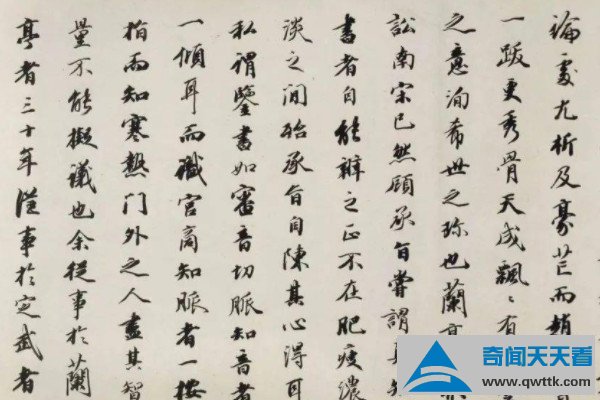 論覈尤析及豪芒而趙
一跋更秀骨天成飄〻有
之意洵希世之珎也蘭亭
訟南宋已然顧承旨嘗謂
書者自能辨之正不在肥瘦濃
談之间殆承旨自陳其心得耳
私謂鑒書如審音切脈知音者
一傾耳而識宮商知脈者一按
指而知寒熱门外之人盡其智
量不能擬議也余從事於蘭
亭者三十年從事於定武者
奇闻天天看
www.qwttk.com